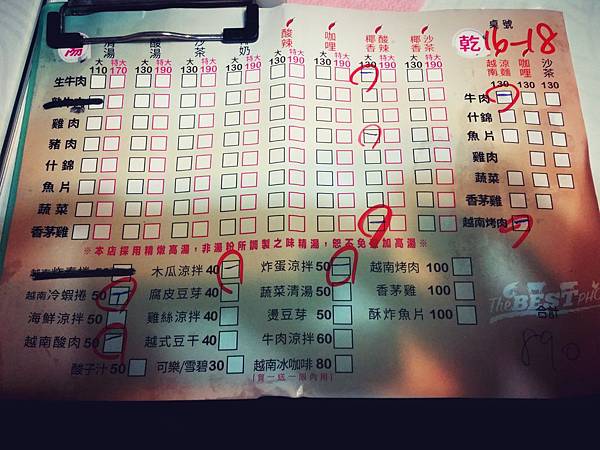 湯 清湯 酸湯 沙茶 椰奶 酸辣 咖哩 椰香酸辣 椰香沙茶 乾 桌號 16-18
大 特大 大 特大 大 特大 大 特大 大 特大 大 特大 大 特大 大 特大 越南涼麵 咖哩 沙茶
110 170 130 190 130 190 130 190 130 190 130 190 130 190 130 190 130 130 130
生牛肉
雞肉
豬肉
什錦
魚片
蔬菜
香茅雞
牛肉
什錦
魚片
雞肉
蔬菜
香茅雞
越南烤肉
※本店採用精燉高湯,非湯粉所調製之味精湯,恕不免費加高湯※
木瓜涼拌 40 炸蛋涼拌 50 越南烤肉 100
越南冷蝦捲 50 腐皮豆芽 40 蔬菜清湯 50 香茅雞 100
海鮮涼拌 50 雞絲涼拌 40 燙豆芽 50 酥炸魚片 100
越南酸肉 50 越式豆干 40 牛肉涼拌 60
酸子汁 50 可樂/雪碧 30 越南冰咖啡 80
(買一送一限內用)
The BEST PHO
合計
890